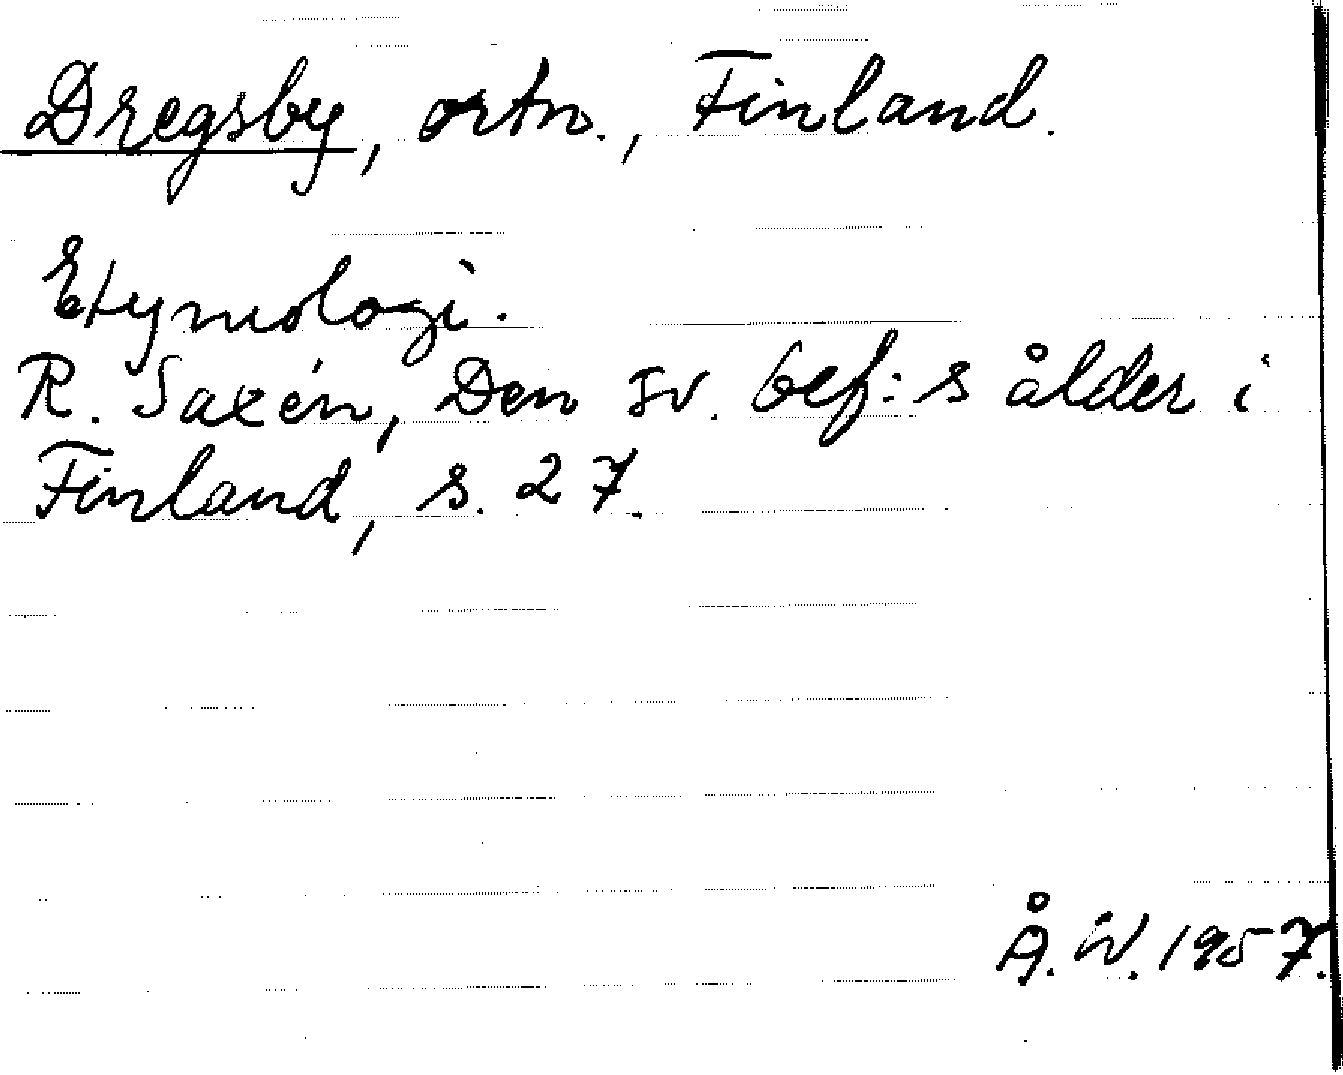 Dregsby, ortn., Finland.
Etymologi.
R. Saxén, Den sv. bef:s ålder i
Finland, s. 27.
Å. W. 1957.